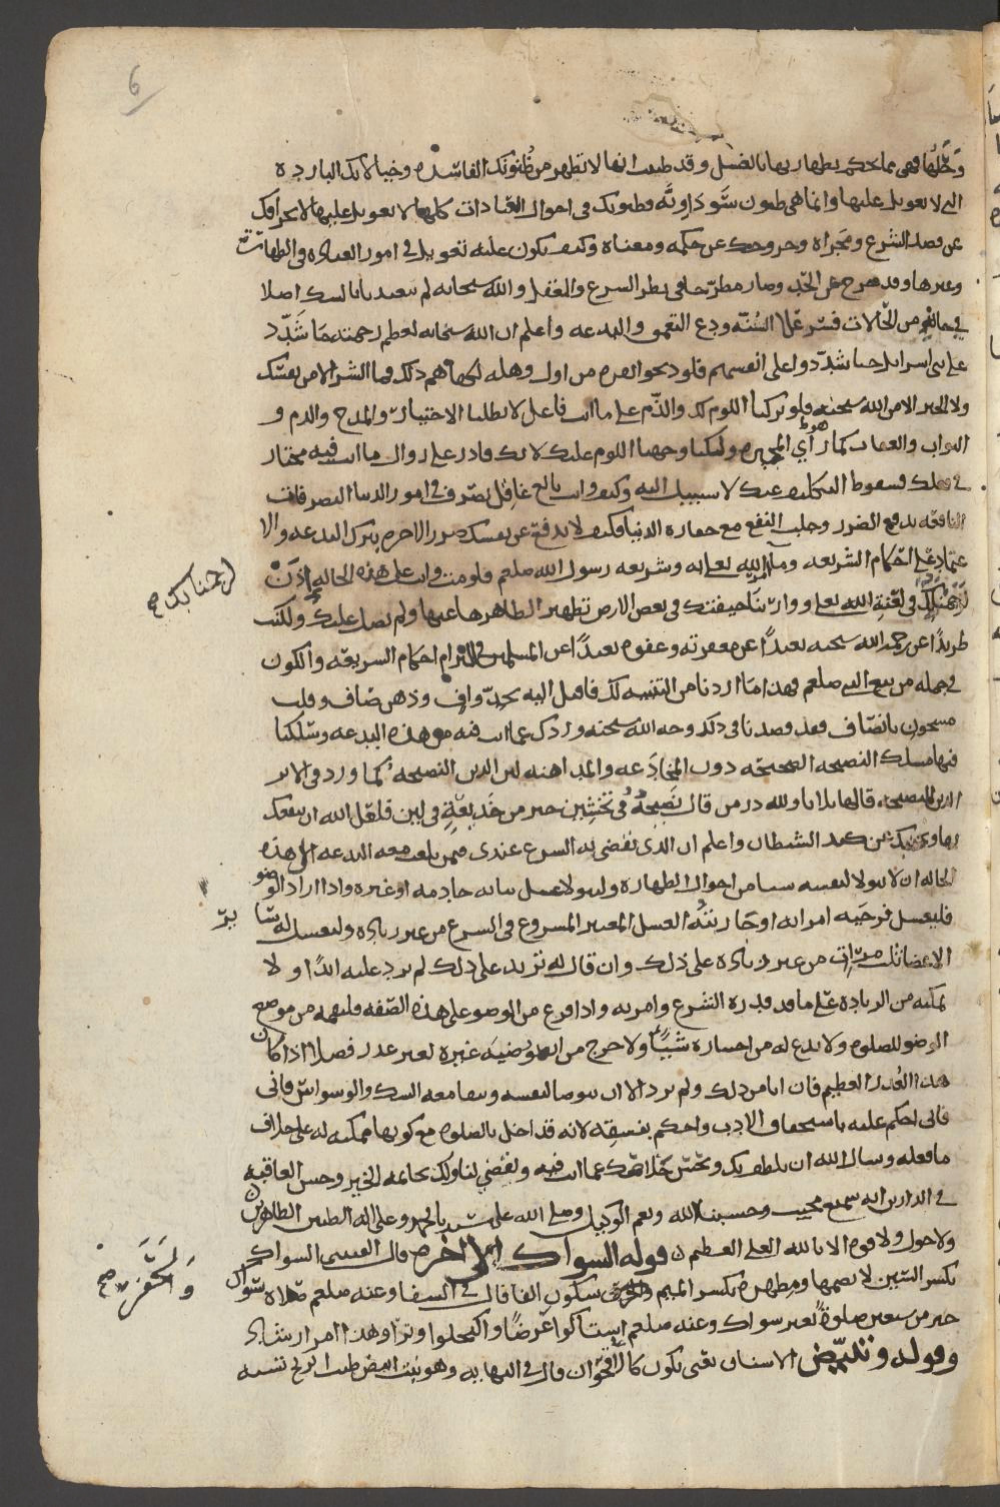 6
وحللها فهي مما يحكم بطهارتها بالغسل وقد ظننت انها لا تطهر من ظنونك الفاسده وخيالاتك البارده
التي لا تعويل عليها وانما هي ظنون سوداويه وظنونك في احوال العبادات كلها لا تعويل عليها لانحرافك
عن قصد الشرع ومجراه وخروجك عن حكمه ومعناه وكيف يكون عليه تعويل في امور العباده والطهارت
وغيرها وقد خرج عن الحد وصار مطرحا في نظر الشرع والعقل والله سبحانه لم يتعبدنا بالشك اصلا
في حالة من الحالات فسر على السنه ودع التعمق والبدعه واعلم ان الله سبحانه لعظم رحمته ما شدد
على بني اسرائيل حتى شددوا على انفسهم فلو ذبحوا بقره من اول وهله لكفاهم ذلك وما الشر الا من نفسك
ولا الخير الا من الله سبحنه فلو تركنا اللوم لك والذم على ما انت فاعل لابطلنا الاختيار والمدح والذم و
الثواب والعقاب كما هو راي المجبره ولكنا وجهنا اللوم عليك لانك قادر على زوال ما انت فيه مختار
في فعلك فسقوط التكليف عنك لا سبيل اليه وكيف وانت بالغ عاقل تصرف في امور الدنيا التصرفات
النافعه بدفع الضرر وجلب النفع مع حقاره الدنيا فكيف لا تدفع عن نفسك ضرر الاخره بترك البدعه والا
عتماد على احكام الشريعه وما الزمه الله تعالى وشريعه رسول الله صلعم فلو مت وانت على هذه الحاله اذن
في لعنة الله تعالى ووارتنا جيفتك في بعض الارض تطهير الظاهرها عنها ولم نصل عليك ولكنت
لرحمنا بك صح
طريدا عن رحمة الله سبحنه بعيدا عن مغفرته وعفوه بعيدا عن المسلمين في التزام احكام الشريعه والكون
في جمله من يتبع النبي صلعم فهذا ما اردنا من التنبيه لك فاقبل اليه بجد واف وذهن صاف وقلب
مشحون بانصاف فقد قصدنا في ذلك وجه الله سبحنه وردك عما انت فيه من هذه البدعه وسلكنا
فيها مسلك النصيحه الصحيحه دون المخادعه والمداهنه لان الدين النصيحه كما ورد في الاثر
الدين النصيحه قالها ثلاثا ولله در من قال نصيحة في تخشين خير من خديعة في لين فلعل الله ان ينفعك
بها وينجيك من كيد الشطان واعلم ان الذي يقضي به الشرع عندي فيمن بلغت معه البدعه الى هذه
الحاله ان لا يتولا لنفسه شيا من احوال الطهاره وليتولا غسل ثيابه خادمه او غيره واذا اراد الوضو
فليغسل فرجيه امراته او جاريته الغسل المعتبر المشروع في الشرع من غير زياده وليغسل له سائر
الاعضا ثلث مرات من غير زياده على ذلك وان قال له تزيد على ذلك لم يزد عليه ابدا ولا
يمكنه من الزيادة على ما قد قدره الشرع وامر به واذا فرغ من الوضو على هذه الصفه فليقم من موضع
الوضو للصلوه ولا يدع له من اختياره شيئا ولا حرج من ان يوضيه غيره لغير عذر فضلا اذا كان
هذا العذر العظيم فان ابا من ذلك ولم يرد الا ان يتوضا لنفسه ويبقا معه الشك والوسواس فاني
فاني احكم عليه باستحقاق الادب واحكم بفسقه لانه قد اخل بالصلوه مع كونها ممكنه له على خلاف
ما فعله ونسال الله ان يلطف بك ويحسن خلاصك عما انت فيه ويقضي لنا ولك بخاتمه الخير وحسن العاقبه
في الدارين انه سميع مجيب وحسبنا الله ونعم الوكيل وصلى الله على سيدنا محمد وعلى اله الطيبين الطاهرين
ولا حول ولا قوه الا بالله العلي العظيم قوله السواك الى اخره قال العنسي السواك
بكسر السين لا بضمها ومطهره بكسر الميم بسكون الفا قال في الشفا وعنه صلعم صلاه بسواك
خير من سبعين صلوة بغير سواك وعنه صلعم استاكوا عرضا واكتحلوا وترا وهذا امر ارشاد
وقوله وتبيض الاسنان يعني تكون كالاقحوان قال في النهايه وهو نبت ابيض طيب الريح تشبه